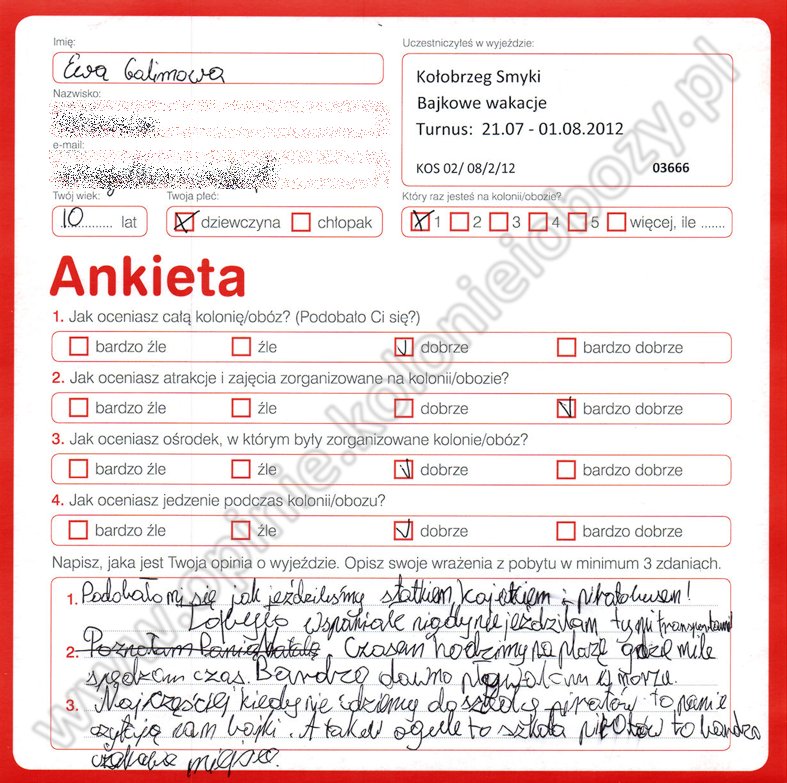 Imię:
Ewa Galimowa
Nazwisko:
e-mail:
Twój wiek:
10 lat
Twoja płeć:
dziewczyna chłopak
Uczestniczyłeś w wyjeździe:
Kołobrzeg Smyki
Bajkowe wakacje
Turnus: 21.07 - 01.08.2012
KOS 02/ 08/2/12 03666
Który raz jesteś na kolonii/obozie?
1 2 3 4 5 więcej, ile .......
Ankieta
1. Jak oceniasz całą kolonię/obóz? (Podobało Ci się?)
bardzo źle źle dobrze bardzo dobrze
2. Jak oceniasz atrakcje i zajęcia zorganizowane na kolonii/obozie?
bardzo źle źle dobrze bardzo dobrze
3. Jak oceniasz ośrodek, w którym były zorganizowane kolonie/obóz?
bardzo źle źle dobrze bardzo dobrze
4. Jak oceniasz jedzenie podczas kolonii/obozu?
bardzo źle źle dobrze bardzo dobrze
Napisz, jaka jest Twoja opinia o wyjeździe. Opisz swoje wrażenia z pobytu w minimum 3 zdaniach.
1. Podobało mi się jak jeździliśmy statkiem, i
wspaniale nigdy nie jeździłam tymi
2. Poznałam Panią Natalę. Czasem hodzimy na plażę gdzie mile
spędzam czas. Bardzo dawno w morze.
3. Najczęściej kiedy nie idziemy do szkoły piratów to panie
czytają nam bajki. A tak w ogule to szkoła piratów to bardzo
miejsce.
www.opinie.kolonieiobozy.pl